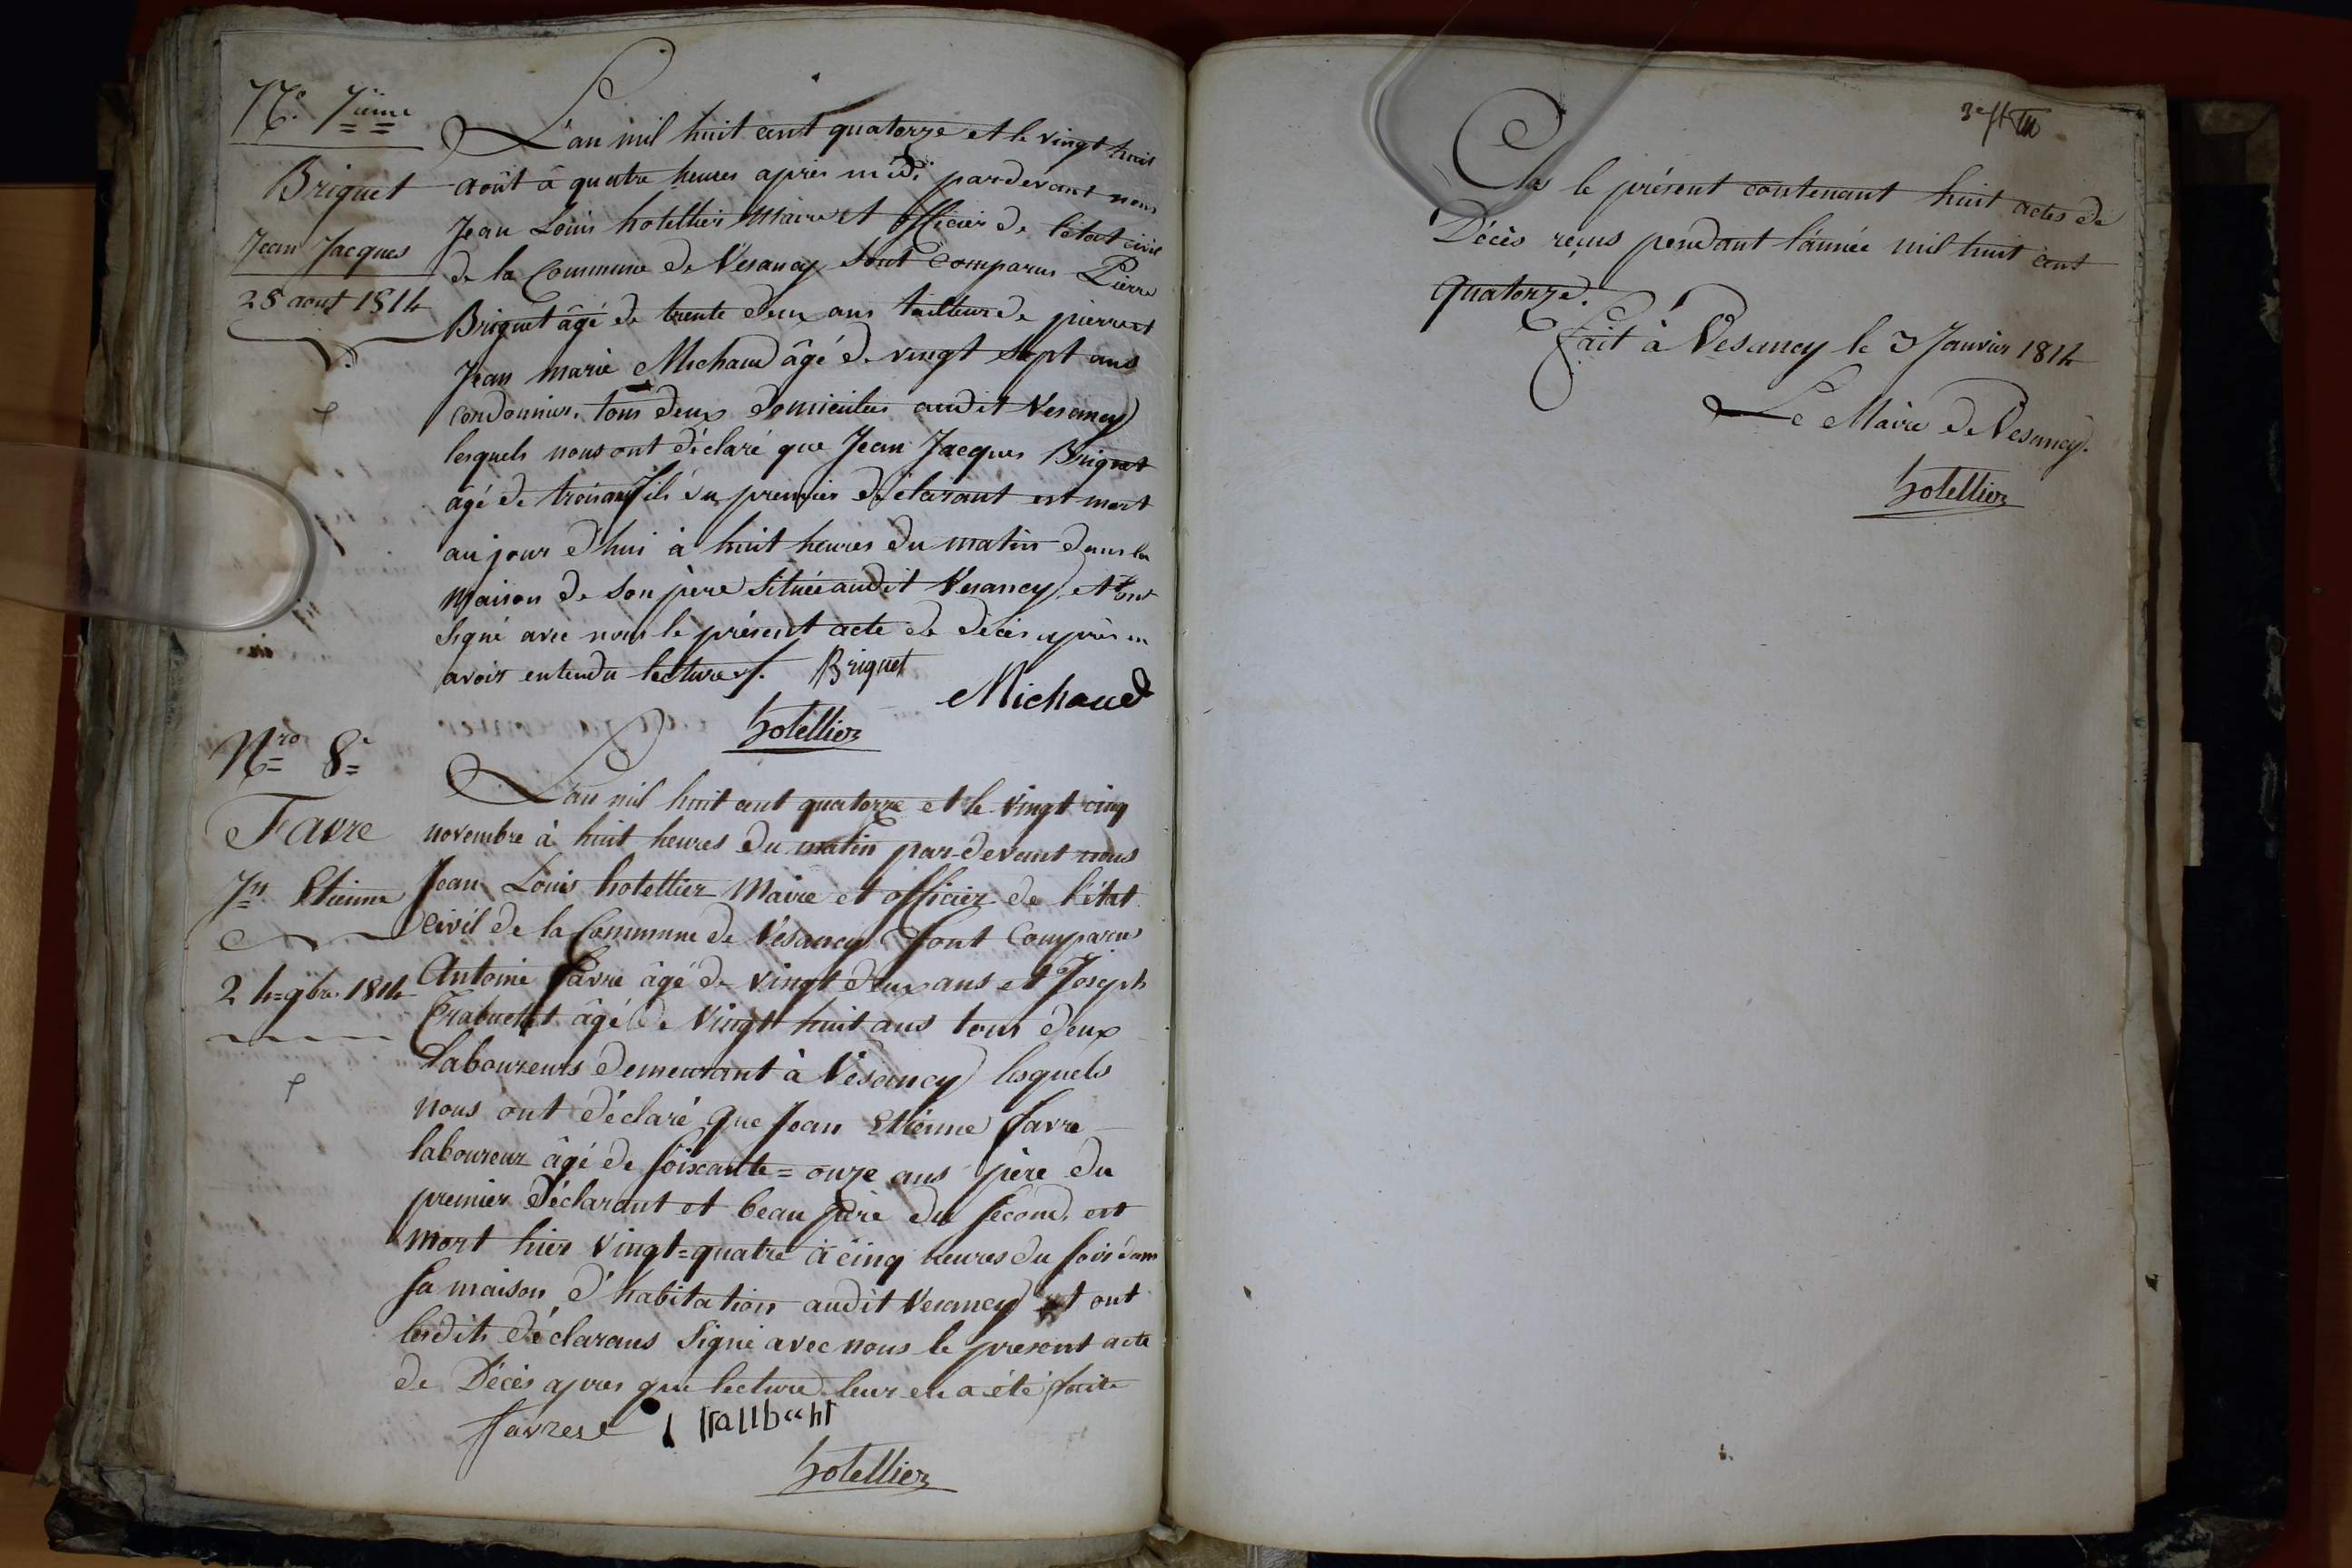 N.º 7ieme
Briquet
Jean Jacques
28 aout 1814
L'an mil huit cent quatorze et le vingt huit
août à quatre heures après midi pardevant nous
Jean Louis hotellier Maire et officier de l'état civil
de la Commune de Vesancy sont comparus Pierre
Briquet âgé de trente deux ans tailleur de pierre et
Jean marie Michaud âgé de vingt sept ans
cordonnier, tous deux domiciliés audit Vesancy
lesquels nous ont déclaré que Jean Jacques Briquet
âgé de trois ans fils du premier déclarant est mort
aujour d'hui à huit heures du matin dans la
maison de son père située audit Vesancy, et ont
signé avec nous le présent acte de décès après en
avoir entendu lecture.
Briquet
Michaud
hotellier
Nro 8e
Favre
Jn Etienne
24=9bre 1814
L'an mil huit cent quatorze et le vingt cinq
novembre à huit heures du matin par-devant nous
Jean Louis hotellier Maire et officier de l'état
civil de la Commune de Vésancy sont comparus
Antoine favre âgé de vingt deux ans et Joseph
Trabuchet âgé de vingt huit ans tous deux
Laboureurs demeurant à Vésancy lesquels
nous ont déclaré que Jean Etienne favre
laboureur âgé de soixante=onze ans père du
premier déclarant et beau père du second, est
mort hier vingt=quatre à cinq heures du soir dans
sa maison d'habitation audit Vesancy et ont
lesdits déclarans signé avec nous le present acte
de Décès apres que lecture leur en a été faite
favre
hotellier
Clos le présent contenant huit actes de
Décès reçus pendant l'année mil huit cent
quatorze.
fait à Vesancy le 3 Janvier 1814
Le Maire de Vesancy.
hotellier